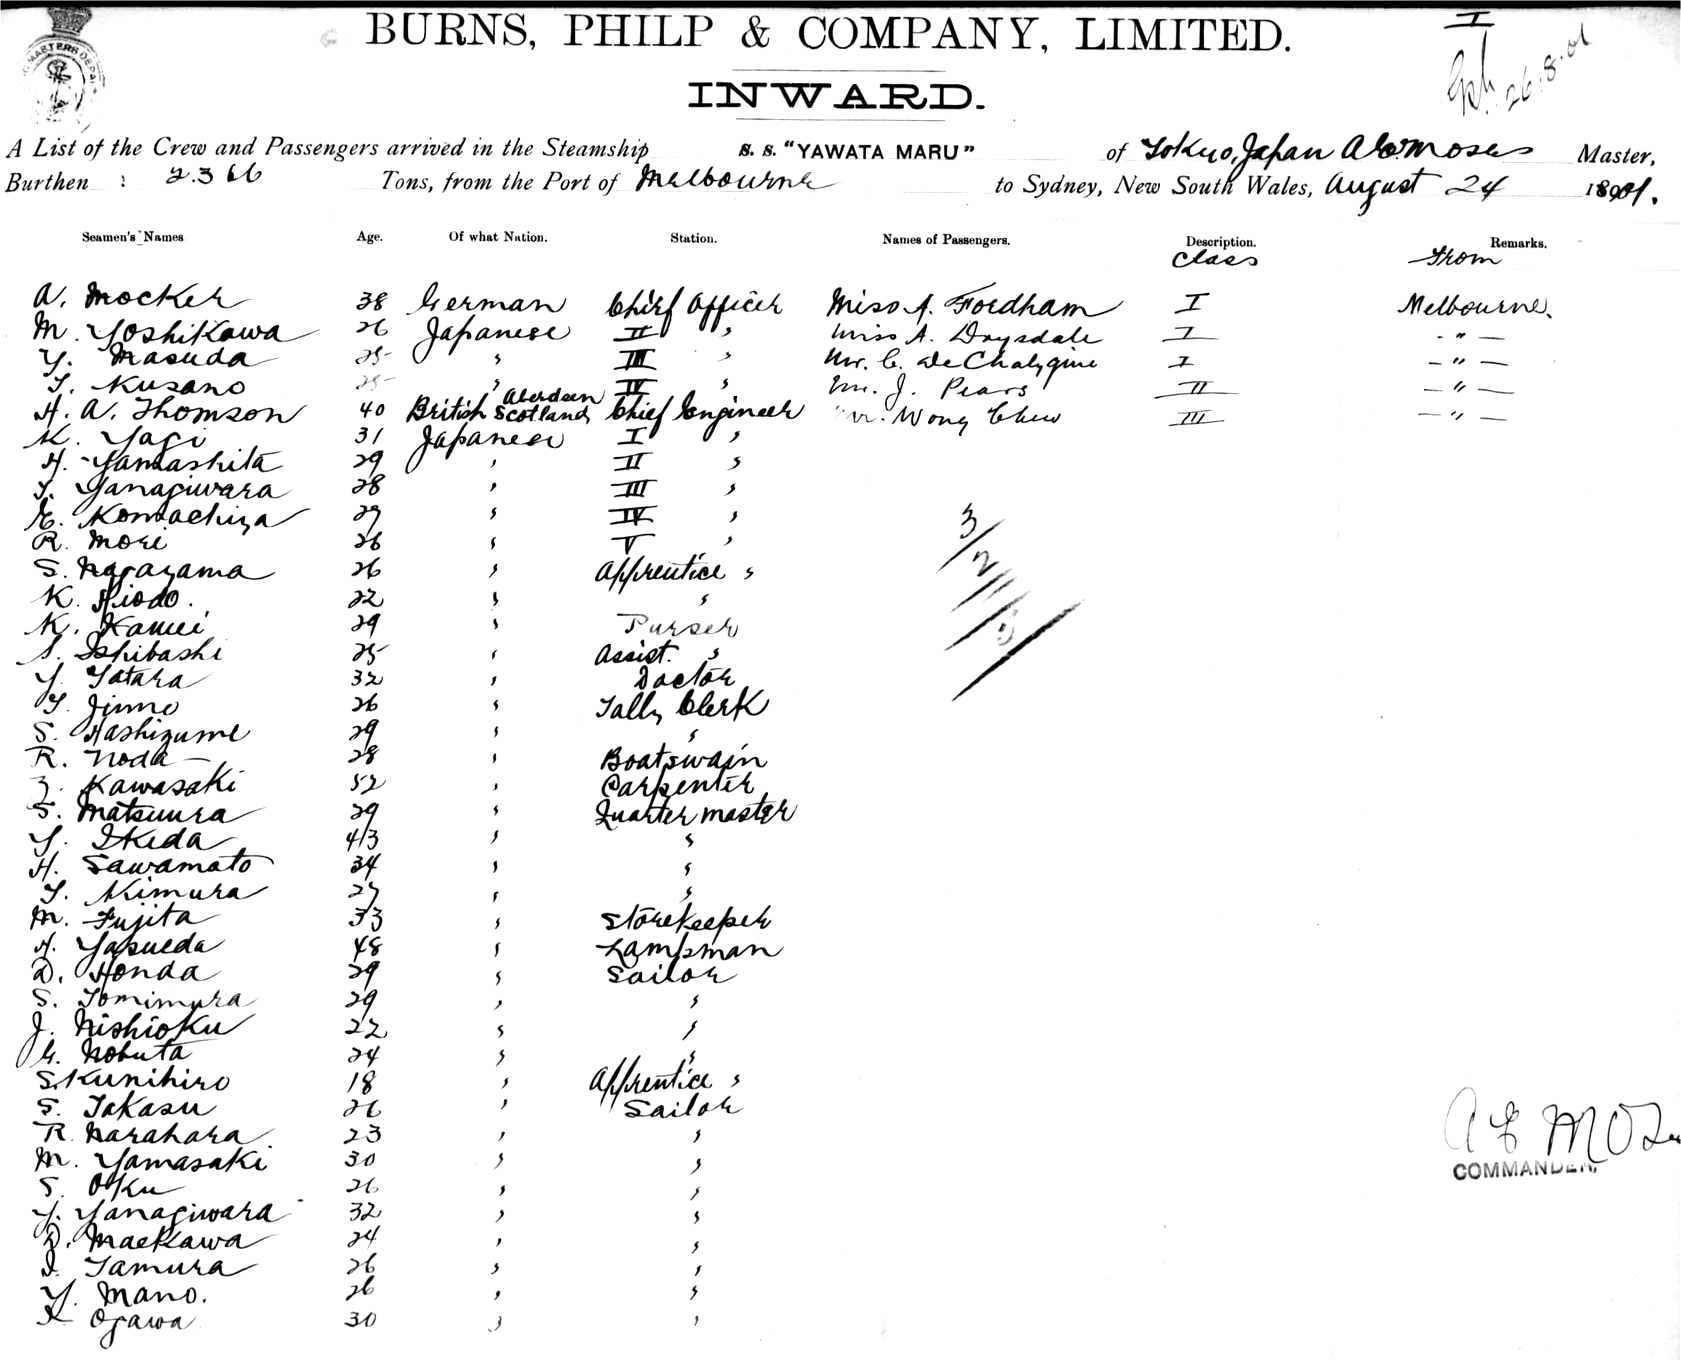 BURNS, PHILP & COMPANY, LIMITED.
I
26.8.01
INWARD.
A List of the Crew and Passengers arrived in the Steamship S. S. "YAWATA MARU" of Tokyo, Japan A E. Moses Master,
Burthen : 2366 Tons, from the Port of Melbourne to Sydney, New South Wales, August 24 1901.
Seamen's Names Age. Of what Nation. Station. Names of Passengers. Description. Remarks.
Class From
A. Mocker 38 German Chief Officer Miss A. Fordham I Melbourne.
M. Yoshikawa 26 Japanese II " Miss A. Drysdale I - " -
Y. Masuda 25 " III " Mr. C. De Chalygine I - " -
T. Kusano 25 " IV " Mr. J. Pears II - " -
Aberdeen
H. A. Thomson 40 British Scotland Chief Engineer Mr. Wong Chew III - " -
K. Yagi 31 Japanese I "
H. Yamashita 29 " II "
T. Yanagiwara 28 " III "
E. Komachiya 27 " IV "
R. Mori 26 " V "
S. Nagayama 26 " Apprentice "
K. Hiodo. 22 " "
K. Kamei 29 " Purser
S. Ishibashi 25 " Assist. "
Y. Tatara 32 " Doctor
T. Jinno 26 " Tally Clerk
S. Hashizume 29 " "
R. Noda 28 " Boatswain
Z. Kawasaki 52 " Carpenter
S. Matsuura 29 " Quartermaster
Y. Ikeda 43 " "
H. Sawamato 34 " "
T. Kimura 27 " "
M. Fujita 33 " Storekeeper
H. Yasueda 48 " Lampsman
D. Honda 29 " Sailor
S. Tomimura 29 " "
J. Nishioku 22 " "
G. Nobuta 24 " "
S. Kunihiro 18 " Apprentice "
S. Takasu 26 " Sailor
R. Narahara 23 " "
M. Yamasaki 30 " "
S. Oku 26 " "
Y. Yanagiwara 32 " "
D. Maekawa 24 " "
I. Tamura 26 " "
Y. Mano. 26 " "
K Ogawa 30 " "
3/2/1/5
A E Moses
COMMANDER.